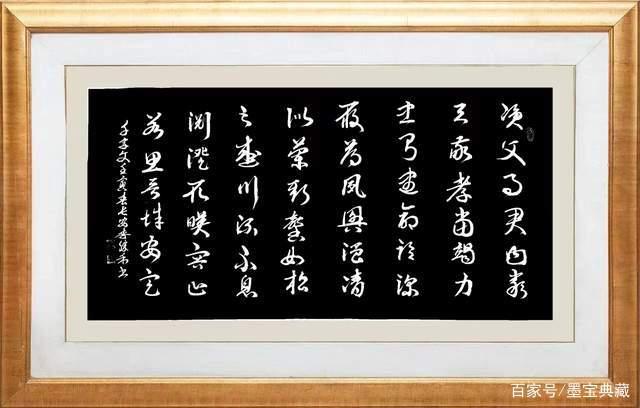 資父事君曰嚴
與敬孝當竭力
忠則盡命臨深
履薄夙興溫凊
似蘭斯馨如松
之盛川流不息
淵澄取映容止
若思言辭安定
千字文
百家号/墨宝典藏